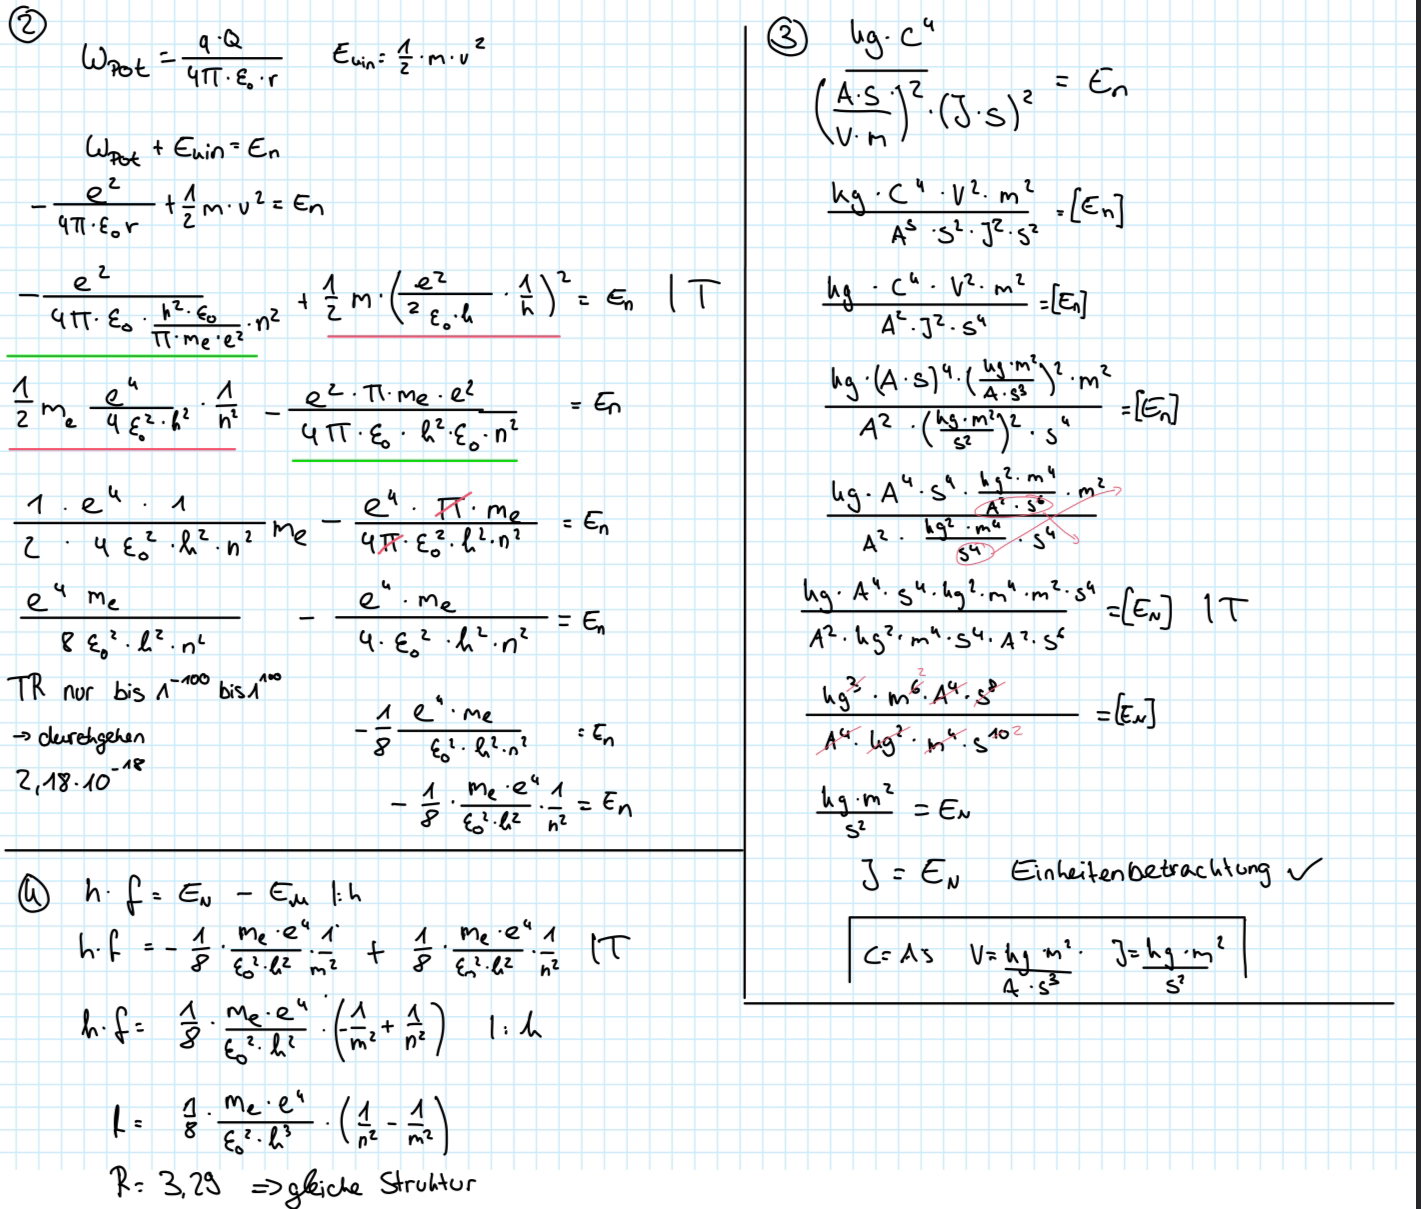 ②
W_Pot = q·Q / (4π·ε₀·r)    E_kin = 1/2·m·v²
W_Pot + E_kin = E_n
- e² / (4π·ε₀ r) + 1/2 m·v² = E_n
- e² / (4π·ε₀ · (h²·ε₀ / (π·m_e·e²)) ·n²) + 1/2 m·(e² / (2 ε₀·h) · 1/n)² = E_n | T
1/2 m_e e⁴ / (4 ε₀²·h²) · 1/n² - e²·π·m_e·e² / (4π·ε₀·h²·ε₀·n²) = E_n
1·e⁴·1 / (2·4 ε₀²·h²·n²) m_e - e⁴·π·m_e / (4π·ε₀²·h²·n²) = E_n
e⁴ m_e / (8 ε₀²·h²·n²) - e⁴·m_e / (4·ε₀²·h²·n²) = E_n
TR nur bis 1⁻¹⁰⁰ bis 1¹⁰⁰
→ durchgehen
2,18·10⁻¹⁸
- 1/8 e⁴·m_e / (ε₀²·h²·n²) = E_n
- 1/8 · m_e·e⁴ / (ε₀²·h²) · 1/n² = E_n
③
kg·C⁴ / ((A·S· / V·m)²·(J·s)²) = E_n
kg·C⁴·V²·m² / (A⁵·s²·J²·s²) = [E_n]
kg·C⁴·V²·m² / (A²·J²·s⁴) = [E_n]
kg·(A·s)⁴·(kg·m² / A·s³)²·m² / (A²·(kg·m² / s²)²·s⁴) = [E_n]
kg·A⁴·s⁴·(kg²·m⁴ / A²·s⁶)·m² / (A²·(kg²·m⁴ / s⁴)·s⁴)
kg·A⁴·s⁴·kg²·m⁴·m²·s⁴ / (A²·kg²·m⁴·s⁴·A²·s⁶) = [E_N] | T
kg³·m⁶ ²·A⁴·s⁸ / (A⁴·kg²·m⁴·s¹⁰ ²) = [E_N]
kg·m² / s² = E_N
J = E_N    Einheitenbetrachtung ✓
C = As    V = kg·m²· / (A·s³)    J = kg·m² / s²
④
h·f = E_N - E_M |:h
h·f = - 1/8 · m_e·e⁴ / (ε₀²·h²) · 1/m² + 1/8 · m_e·e⁴ / (ε₀²·h²) · 1/n² | T
h·f = 1/8 · m_e·e⁴ / (ε₀²·h²) · (- 1/m² + 1/n²) |:h
f = 1/8 · m_e·e⁴ / (ε₀²·h³) · (1/n² - 1/m²)
R = 3,29 ⇒ gleiche Struktur